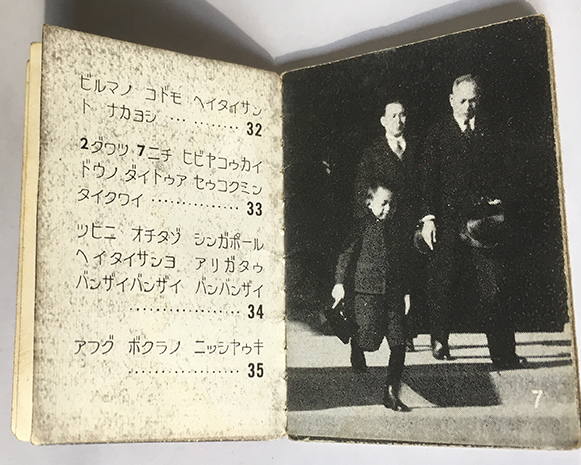 ビルマノ コドモ ヘイタイサン
ト ナカヨシ ‥‥‥‥‥‥ 32
2グワツ・7ニチ ヒビヤコゥカイ
ドウノ ダイトゥア セゥコクミン
タイクワイ ‥‥‥‥‥‥ 33
ツヒニ オチタゾ シンガポール
ヘイタイサンヨ アリガタゥ
バンザイバンザイ バンバンザイ
‥‥‥‥‥‥ 34
アフグ ボクラノ ニッシヤゥキ
‥‥‥‥‥‥ 35
7